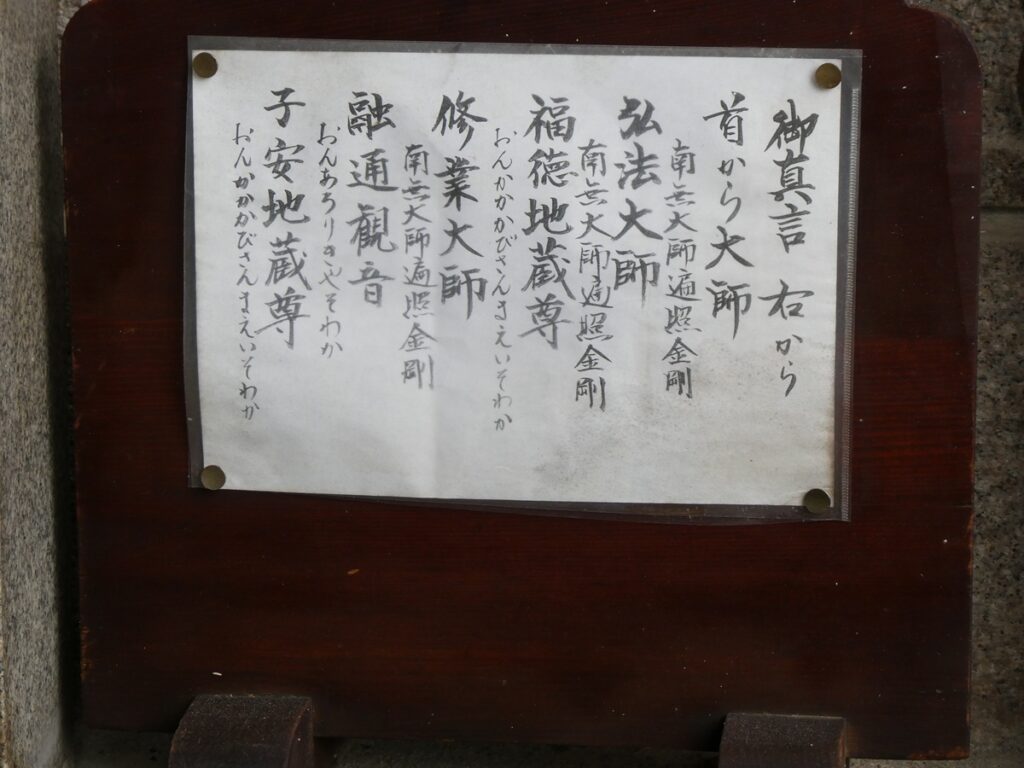 御真言 右から
首から大師
南無大師遍照金剛
弘法大師
南無大師遍照金剛
福徳地蔵尊
おんかかかびさんまえいそわか
修業大師
南無大師遍照金剛
融通観音
おんあろりきゃそわか
子安地蔵尊
おんかかかびさんまえいそわか